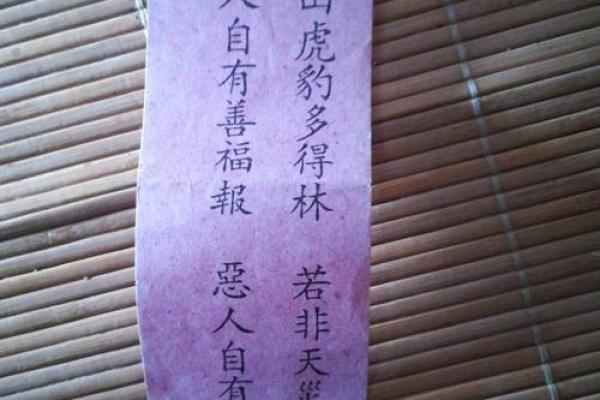 虎豹多得林 若非天災
人自有善福報 惡人自有